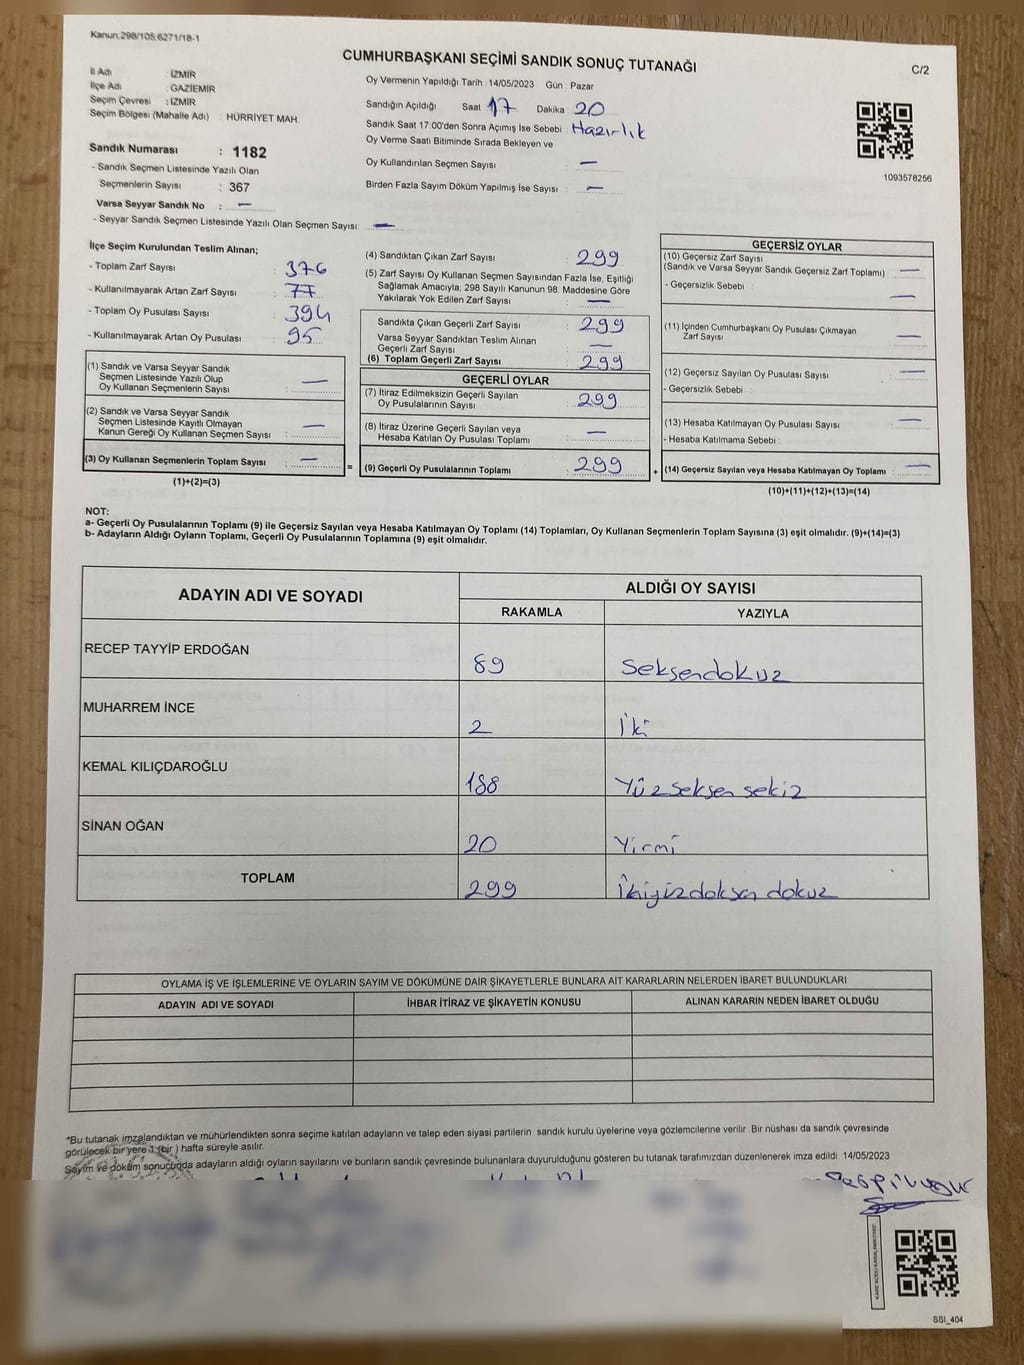 Kanun:298/105;6271/18-1
CUMHURBAŞKANI SEÇİMİ SANDIK SONUÇ TUTANAĞI
C/2
İl Adı : İZMİR
İlçe Adı : GAZİEMİR
Seçim Çevresi : İZMİR
Seçim Bölgesi (Mahalle Adı) : HÜRRİYET MAH
Sandık Numarası : 1182
- Sandık Seçmen Listesinde Yazılı Olan
Seçmenlerin Sayısı : 367
Varsa Seyyar Sandık No : —
- Seyyar Sandık Seçmen Listesinde Yazılı Olan Seçmen Sayısı: —
Oy Vermenin Yapıldığı Tarih : 14/05/2023 Gün : Pazar
Sandığın Açıldığı Saat 17 Dakika 20
Sandık Saat 17:00'den Sonra Açımış İse Sebebi : Hazırlık
Oy Verme Saati Bitiminde Sırada Bekleyen ve
Oy Kullandırılan Seçmen Sayısı : —
Birden Fazla Sayım Döküm Yapılmış İse Sayısı : —
1093578256
İlçe Seçim Kurulundan Teslim Alınan;
- Toplam Zarf Sayısı : 376
- Kullanılmayarak Artan Zarf Sayısı : 77
- Toplam Oy Pusulası Sayısı : 394
- Kullanılmayarak Artan Oy Pusulası : 95
(1) Sandık ve Varsa Seyyar Sandık
Seçmen Listesinde Yazılı Olup
Oy Kullanan Seçmenlerin Sayısı : —
(2) Sandık ve Varsa Seyyar Sandık
Seçmen Listesinde Kayıtlı Olmayan
Kanun Gereği Oy Kullanan Seçmen Sayısı : —
(3) Oy Kullanan Seçmenlerin Toplam Sayısı : —
(1)+(2)=(3)
=
(4) Sandıktan Çıkan Zarf Sayısı : 299
(5) Zarf Sayısı Oy Kullanan Seçmen Sayısından Fazla İse, Eşitliği
Sağlamak Amacıyla, 298 Sayılı Kanunun 98. Maddesine Göre
Yakılarak Yok Edilen Zarf Sayısı : —
Sandıkta Çıkan Geçerli Zarf Sayısı : 299
Varsa Seyyar Sandıktan Teslim Alınan
Geçerli Zarf Sayısı : —
(6) Toplam Geçerli Zarf Sayısı : 299
GEÇERLİ OYLAR
(7) İtiraz Edilmeksizin Geçerli Sayılan
Oy Pusulalarının Sayısı : 299
(8) İtiraz Üzerine Geçerli Sayılan veya
Hesaba Katılan Oy Pusulası Toplamı : —
(9) Geçerli Oy Pusulalarının Toplamı : 299
+
GEÇERSİZ OYLAR
(10) Geçersiz Zarf Sayısı
(Sandık ve Varsa Seyyar Sandık Geçersiz Zarf Toplamı) : —
- Geçersizlik Sebebi : —
(11) İçinden Cumhurbaşkanı Oy Pusulası Çıkmayan
Zarf Sayısı : —
(12) Geçersiz Sayılan Oy Pusulası Sayısı : —
- Geçersizlik Sebebi :
(13) Hesaba Katılmayan Oy Pusulası Sayısı : —
- Hesaba Katılmama Sebebi :
(14) Geçersiz Sayılan veya Hesaba Katılmayan Oy Toplamı : —
(10)+(11)+(12)+(13)=(14)
NOT:
a- Geçerli Oy Pusulalarının Toplamı (9) ile Geçersiz Sayılan veya Hesaba Katılmayan Oy Toplamı (14) Toplamları, Oy Kullanan Seçmenlerin Toplam Sayısına (3) eşit olmalıdır. (9)+(14)=(3)
b- Adayların Aldığı Oyların Toplamı, Geçerli Oy Pusulalarının Toplamına (9) eşit olmalıdır.
ADAYIN ADI VE SOYADI
ALDIĞI OY SAYISI
RAKAMLA YAZIYLA
RECEP TAYYİP ERDOĞAN 89 Seksendokuz
MUHARREM İNCE 2 İki
KEMAL KILIÇDAROĞLU 188 Yüzseksen sekiz
SİNAN OĞAN 20 Yirmi
TOPLAM 299 İkiyüzdoksan dokuz
OYLAMA İŞ VE İŞLEMLERİNE VE OYLARIN SAYIM VE DÖKÜMÜNE DAİR ŞİKAYETLERLE BUNLARA AİT KARARLARIN NELERDEN İBARET BULUNDUKLARI
ADAYIN ADI VE SOYADI İHBAR İTİRAZ VE ŞİKAYETİN KONUSU ALINAN KARARIN NEDEN İBARET OLDUĞU
*Bu tutanak imzalandıktan ve mühürlendikten sonra seçime katılan adayların ve talep eden siyasi partilerin sandık kurulu üyelerine veya gözlemcilerine verilir. Bir nüshası da sandık çevresinde
görülecek bir yere 1 (bir) hafta süreyle asılır.
Sayım ve döküm sonucunda adayların aldığı oyların sayılarını ve bunların sandık çevresinde bulunanlara duyurulduğunu gösteren bu tutanak tarafımızdan düzenlenerek imza edildi. 14/05/2023
SSI_404